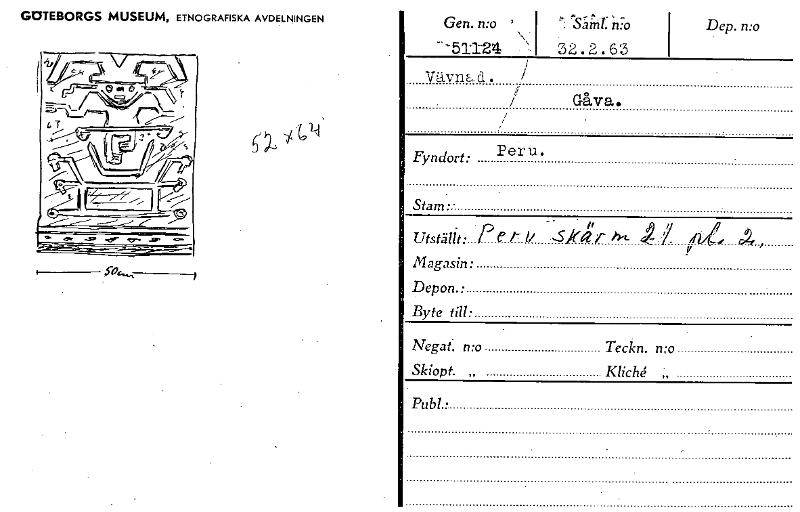 GÖTEBORGS MUSEUM, ETNOGRAFISKA AVDELNINGEN
52 x 64
50cm
Gen. n:o Saml. n:o Dep. n:o
51124 32.2.63
Vävnad.
Gåva.
Fyndort: Peru.
Stam:
Utställt: Peru skärm 21 pl. 2.
Magasin:
Depon.:
Byte till:
Negat. n:o Teckn. n:o
Skiopt. „ Kliché „
Publ.: